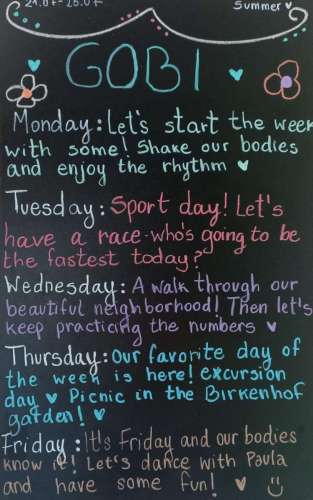 21.07-25.07
Summer ♥
GOBI
Monday: Let's start the week
with some! Shake our bodies
and enjoy the rhythm ♥
Tuesday: Sport day! Let's
have a race - who's going to be
the fastest today?
Wednesday: A walk through our
beautiful neighborhood! Then let's
keep practicing the numbers ♥
Thursday: Our favorite day of
the week is here! excursion
day ♥ Picnic in the Birkenhof
garden! ♥
Friday: It's Friday and our bodies
know it! Let's dance with Paula
and have some fun! ♥ ☺